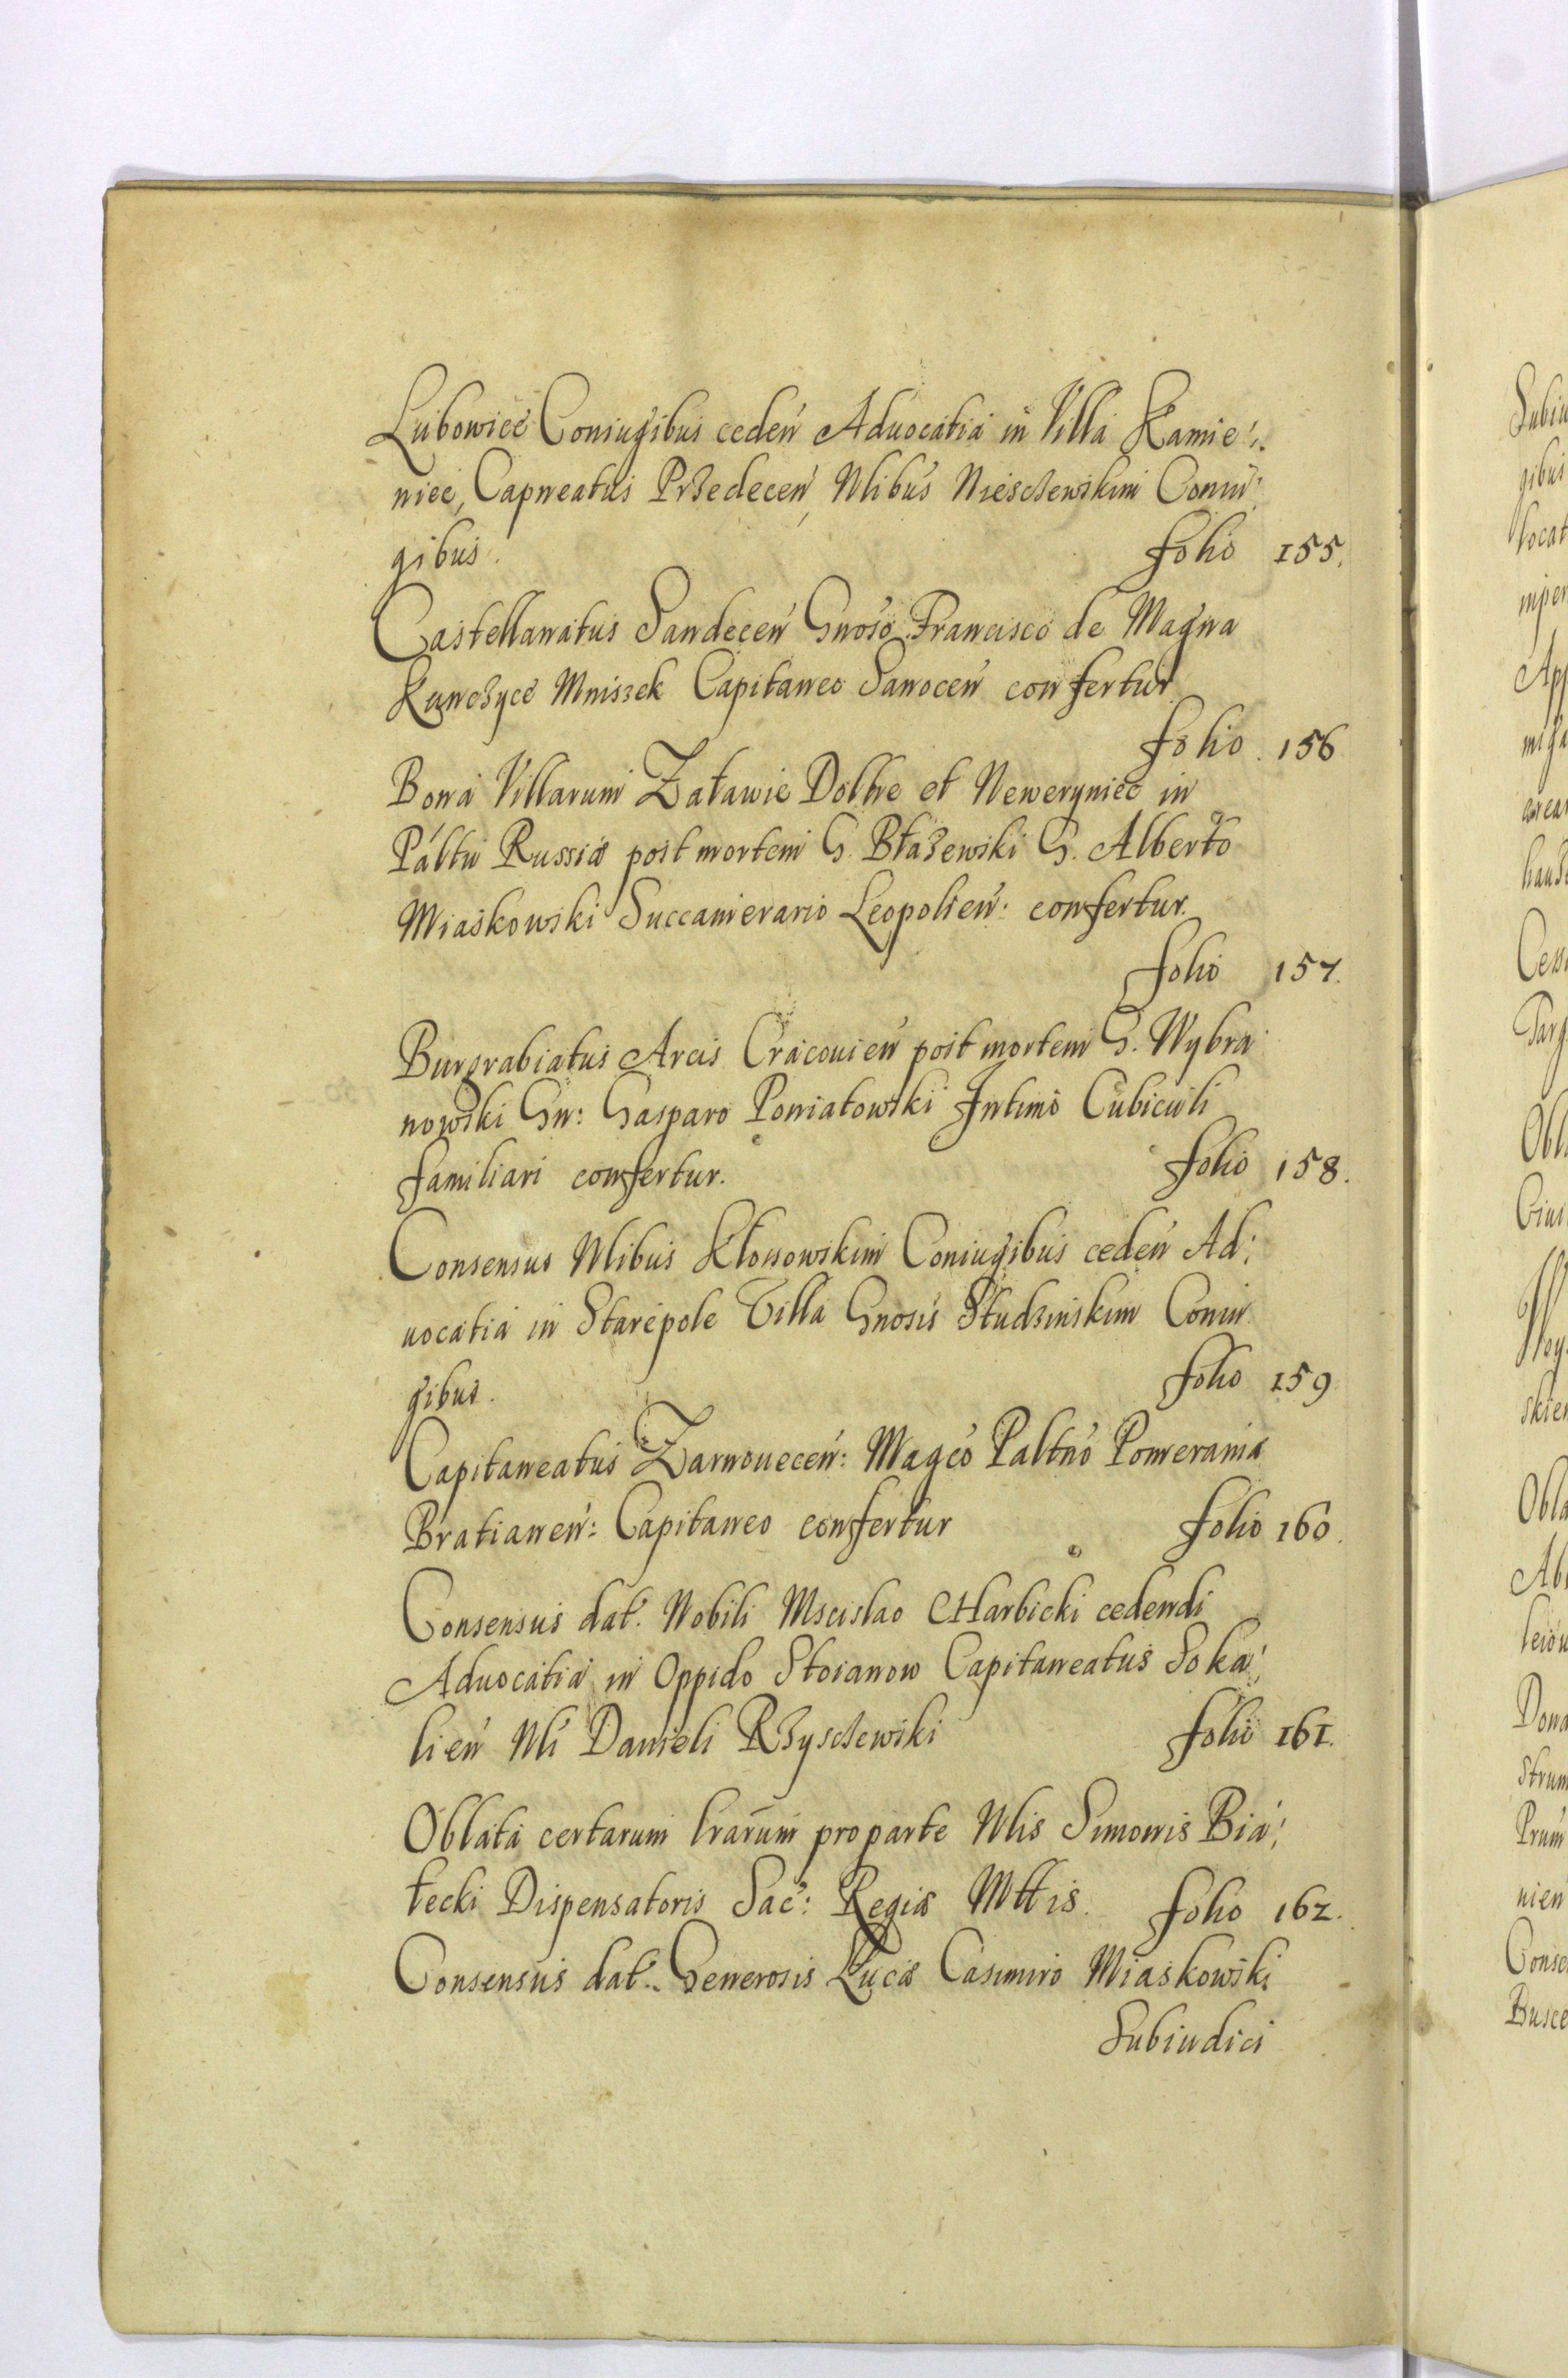 Lubowice Coniugibus ceden̄ Aduocatia in Villa Kamie:
niec, Capneatus Przedecen̄, Nlibus Nieszczewskim Coniu:
gibus. folio 155.
Castellanatus Sandecen̄ Gnoso Francisco de Magna
Kunczyce Mniszek Capitaneo Sanocen̄ confertur
folio 156
Bona Villarum Załawie Dolhe et Neweryniec in
Páltu Russiæ post mortem G. Błażewski G. Alberto
Miaskowski Succamerario Leopolien̄: confertur.
folio 157.
Burgrabiatus Arcis Cracouien̄ post mortem G. Wybra
nowski Gn: Gasparo Poniatowski Intimo Cubiculi
familiari confertur. folio 158.
Consensus Nlibus Kłonowskim Coniugibus ceden̄ Ad:
uocatia in Starepole Villa Gnosis Studzinskim Coniu
gibus. folio 159
Capitaneatus Zarnouecen̄: Magco Paltno Pomeraniæ
Bratianen̄: Capitaneo confertur folio 160.
Consensus dat. Nobili Mscislao Charbicki cedendi
Aduocatia in Oppido Stoianow Capitaneatus Soka:
lien̄ Nli Danieli Rzyszczewski folio 161.
Oblata certarum lrarum pro parte Nlis Simonis Bia:
łecki Dispensatoris Sac: Regiæ Mttis. folio 162.
Consensus dat. Generosis Lucæ Casimiro Miaskowski
Subiudici